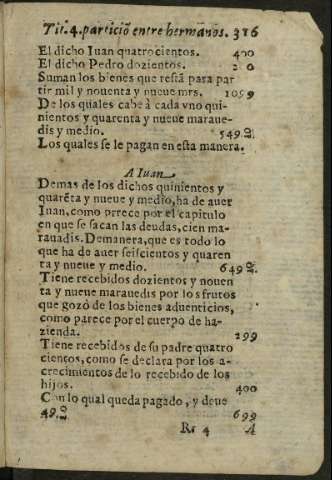 Tit.4.particiõ entre hermanos. 316
El dicho Iuan quatrocientos. 400
El dicho Pedro dozientos. 200
Suman los bienes que restã para par
tir mil y nouenta y nueue mrs. 1059
De los quales cabe à cada vno qui-
nientos y quarenta y nueue maraue-
dis y medio. 549.
Los quales se le pagan en esta manera.
A Iuan
Demas de los dichos quinientos y
quarẽta y nueue y medio, ha de auer
Iuan, como prrece por el capitulo
en que se sacan las deudas, cien ma-
rauadis. Demanera, que es todo lo
que ha de auer seiscientos y quaren
ta y nueue y medio. 649
Tiene recebidos dozientos y nouen
ta y nueue marauedis por los frutos
que gozò de los bienes aduenticios,
como parece por el cuerpo de ha-
zienda. 299
Tiene recebidos de su padre quatro
cientos, como se declara por los a-
crecimientos de lo recebido de los
hijos. 400
Con lo qual queda pagado, y deue
49. 699
Rr 4 A